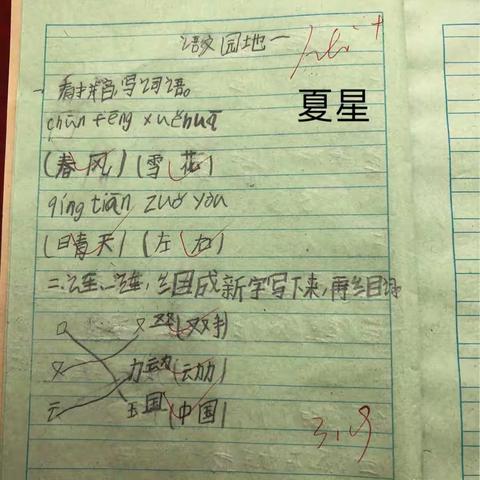 语文园地一
一看拼音,写词语。
夏星
chūn fēng xuě huā
(春风)(雪花)
qíng tiān zuǒ yòu
(晴天)(左右)
二、连一连,组成新字写下来,再组词
口 又 双(双手)
又 力 动(动力)
云 玉 国(中国)
3.19